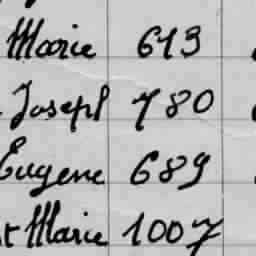 Marie 613
Joseph 780
Eugene 689
Marie 1007